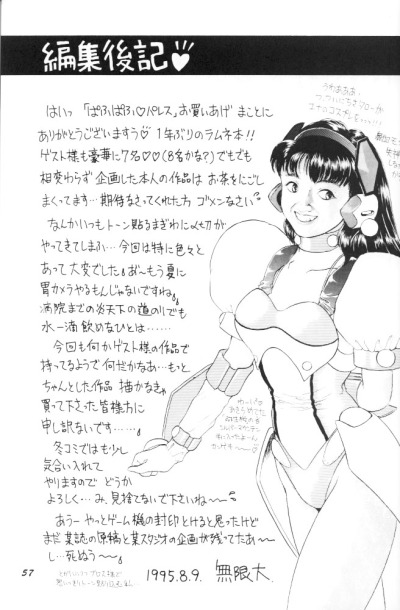 編集後記♡
はいっ「ぱふぱふ♡パレス」お買いあげ まことに
ありがとうございますう♡1年ぶりのラムネ本!!
ゲスト様も豪華に7名♡♡(8名かな?)でもでも
相変わらず 企画した本人の作品は お茶をにごし
まくってます…期待なさってくれた方 ゴメンなさい
なんかいつもトーン貼るまぎわに〆切が
やってきてしまふ…今回は特に色々と
あって大変でした。お〜もう夏に
胃カメラやるもんじゃないですね。
病院までの炎天下の道のりでも
水一滴飲めないひとは……
今回も何かゲスト様の作品で
持ってるようで何だかなあ…もっと
ちゃんとした作品 描かなきゃ
買って下さった皆様方に
申し訳ないです……。
冬コミではも少し
気合い入れて
やりますので どうか
よろしく…み、見捨てないで下さいね〜
あうー やっとゲーム機の封印とけると思ったけど
まだ某誌の原稿と某スタジオの企画が残ってたあ〜
し…死ぬう〜
1995.8.9. 無限大
57